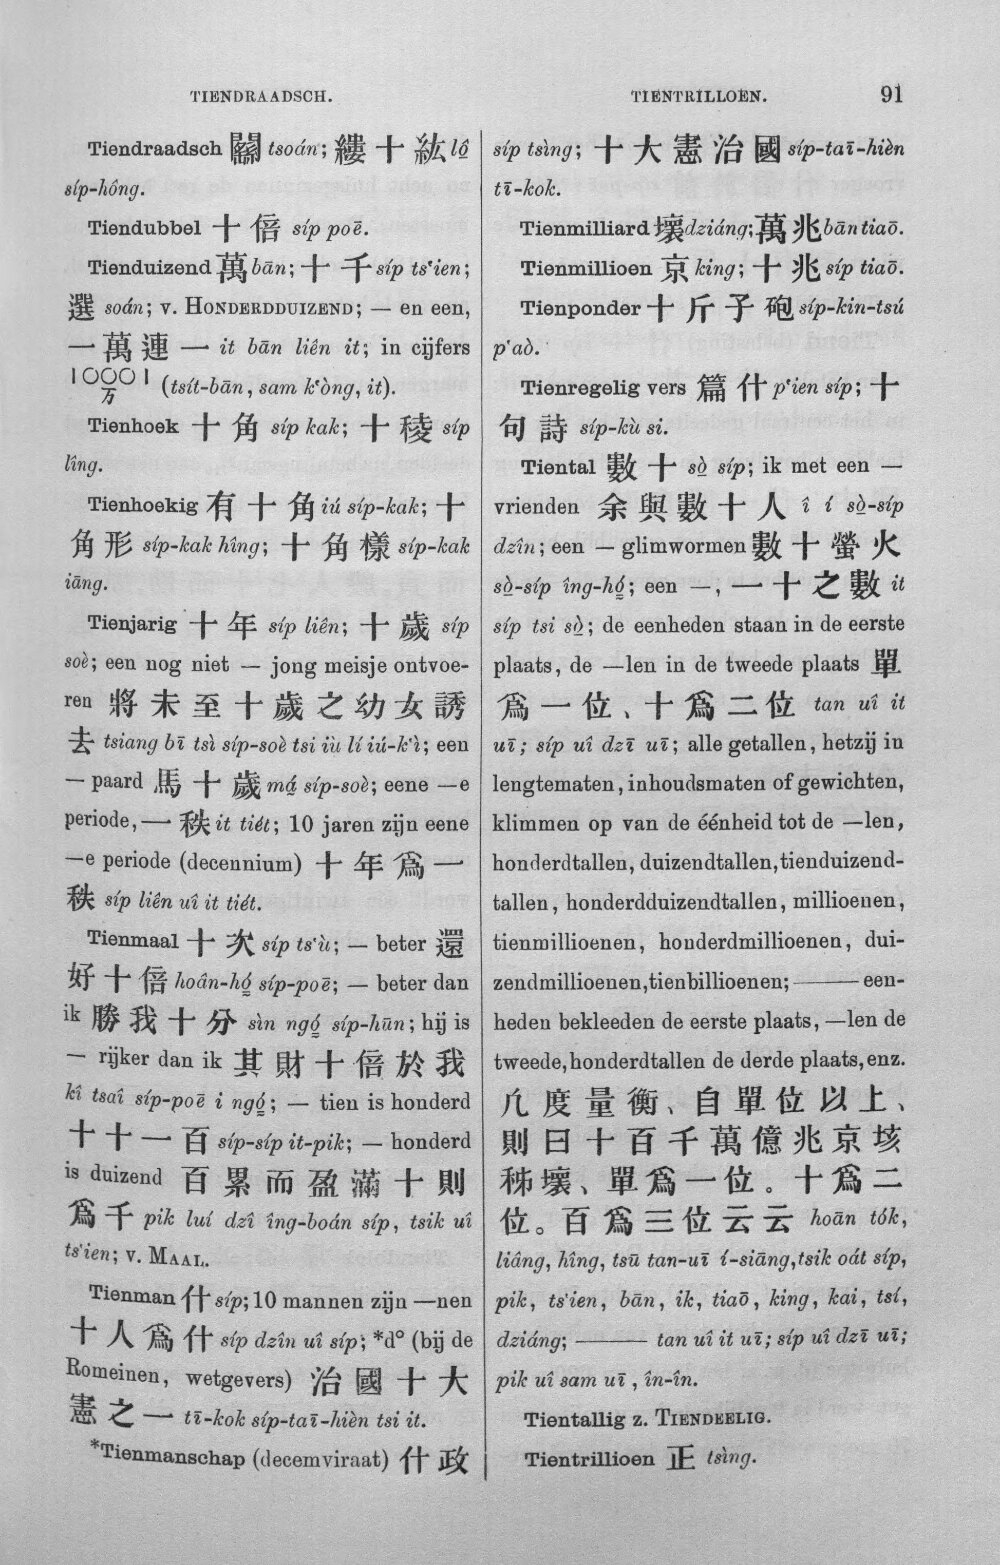 TIENDRAADSCH.
TIENTRILLOEN.
91
Tiendraadsch 𨷺 tsoán; 縷十紘 lô̤
síp-hông.
Tiendubbel 十倍 síp poē.
Tienduizend 萬 bān; 十千 síp ts‘ien;
選 soán; v. HONDERDDUIZEND; — en een,
一萬連一 it bān liên it; in cijfers
10001 (tsít-bān, sam k‘òng, it).
Tienhoek 十角 síp kak; 十稜 síp
lîng.
Tienhoekig 有十角 iú síp-kak; 十
角形 síp-kak hîng; 十角樣 síp-kak
iāng.
Tienjarig 十年 síp liên; 十歲 síp
soè; een nog niet — jong meisje ontvoe-
ren 將未至十歲之幼女誘
去 tsiang bī tsì síp-soè tsi iù lí iú-k‘ì; een
— paard 馬十歲 má̤ síp-soè; eene —e
periode, 一秩 it tiét; 10 jaren zijn eene
—e periode (decennium) 十年爲一
秩 síp liên uî it tiét.
Tienmaal 十次 síp ts‘ù; — beter 還
好十倍 hoân-hó̤ síp-poē; — beter dan
ik 勝我十分 sìn ngó̤ síp-hūn; hij is
— rijker dan ik 其財十倍於我
kî tsaî síp-poē i ngó̤; — tien is honderd
十十一百 síp-síp it-pik; — honderd
is duizend 百累而盈滿十則
爲千 pik luí dzî îng-boán síp, tsik uî
ts‘ien; v. MAAL.
Tienman 什 síp; 10 mannen zijn —nen
十人爲什 síp dzîn uî síp; *d° (bij de
Romeinen, wetgevers) 治國十大
憲之一 tī-kok síp-taī-hièn tsi it.
*Tienmanschap (decemviraat) 什政
síp tsìng; 十大憲治國 síp-taī-hièn
tī-kok.
Tienmilliard 壞 dziáng; 萬兆 bān tiaō.
Tienmillioen 京 king; 十兆 síp tiaō.
Tienponder 十斤子砲 síp-kin-tsú
p‘aò.
Tienregelig vers 篇什 p‘ien síp; 十
句詩 síp-kù si.
Tiental 數十 sò̤ síp; ik met een —
vrienden 余與數十人 î í sò̤-síp
dzîn; een — glimwormen 數十螢火
sò̤-síp îng-hó̤; een —, 一十之數 it
síp tsi sò̤; de eenheden staan in de eerste
plaats, de —len in de tweede plaats 單
爲一位、十爲二位 tan uî it
uī; síp uî dzī uī; alle getallen, hetzij in
lengtematen, inhoudsmaten of gewichten,
klimmen op van de éénheid tot de —len,
honderdtallen, duizendtallen, tienduizend-
tallen, honderdduizendtallen, millioenen,
tienmillioenen, honderdmillioenen, dui-
zendmillioenen, tienbillioenen; ——— een-
heden bekleeden de eerste plaats, —len de
tweede, honderdtallen de derde plaats, enz.
凢度量衡、自單位以上、
則曰十百千萬億兆京垓
秭壞、單爲一位。十爲二
位。百爲三位云云 hoān tók,
liâng, hîng, tsū tan-uī í-siāng, tsik oát síp,
pik, ts‘ien, bān, ik, tiaō, king, kai, tsí,
dziáng; ——— tan uî it uī; síp uî dzī uī;
pik uî sam uī, în-în.
Tientallig z. TIENDEELIG.
Tientrillioen 正 tsìng.